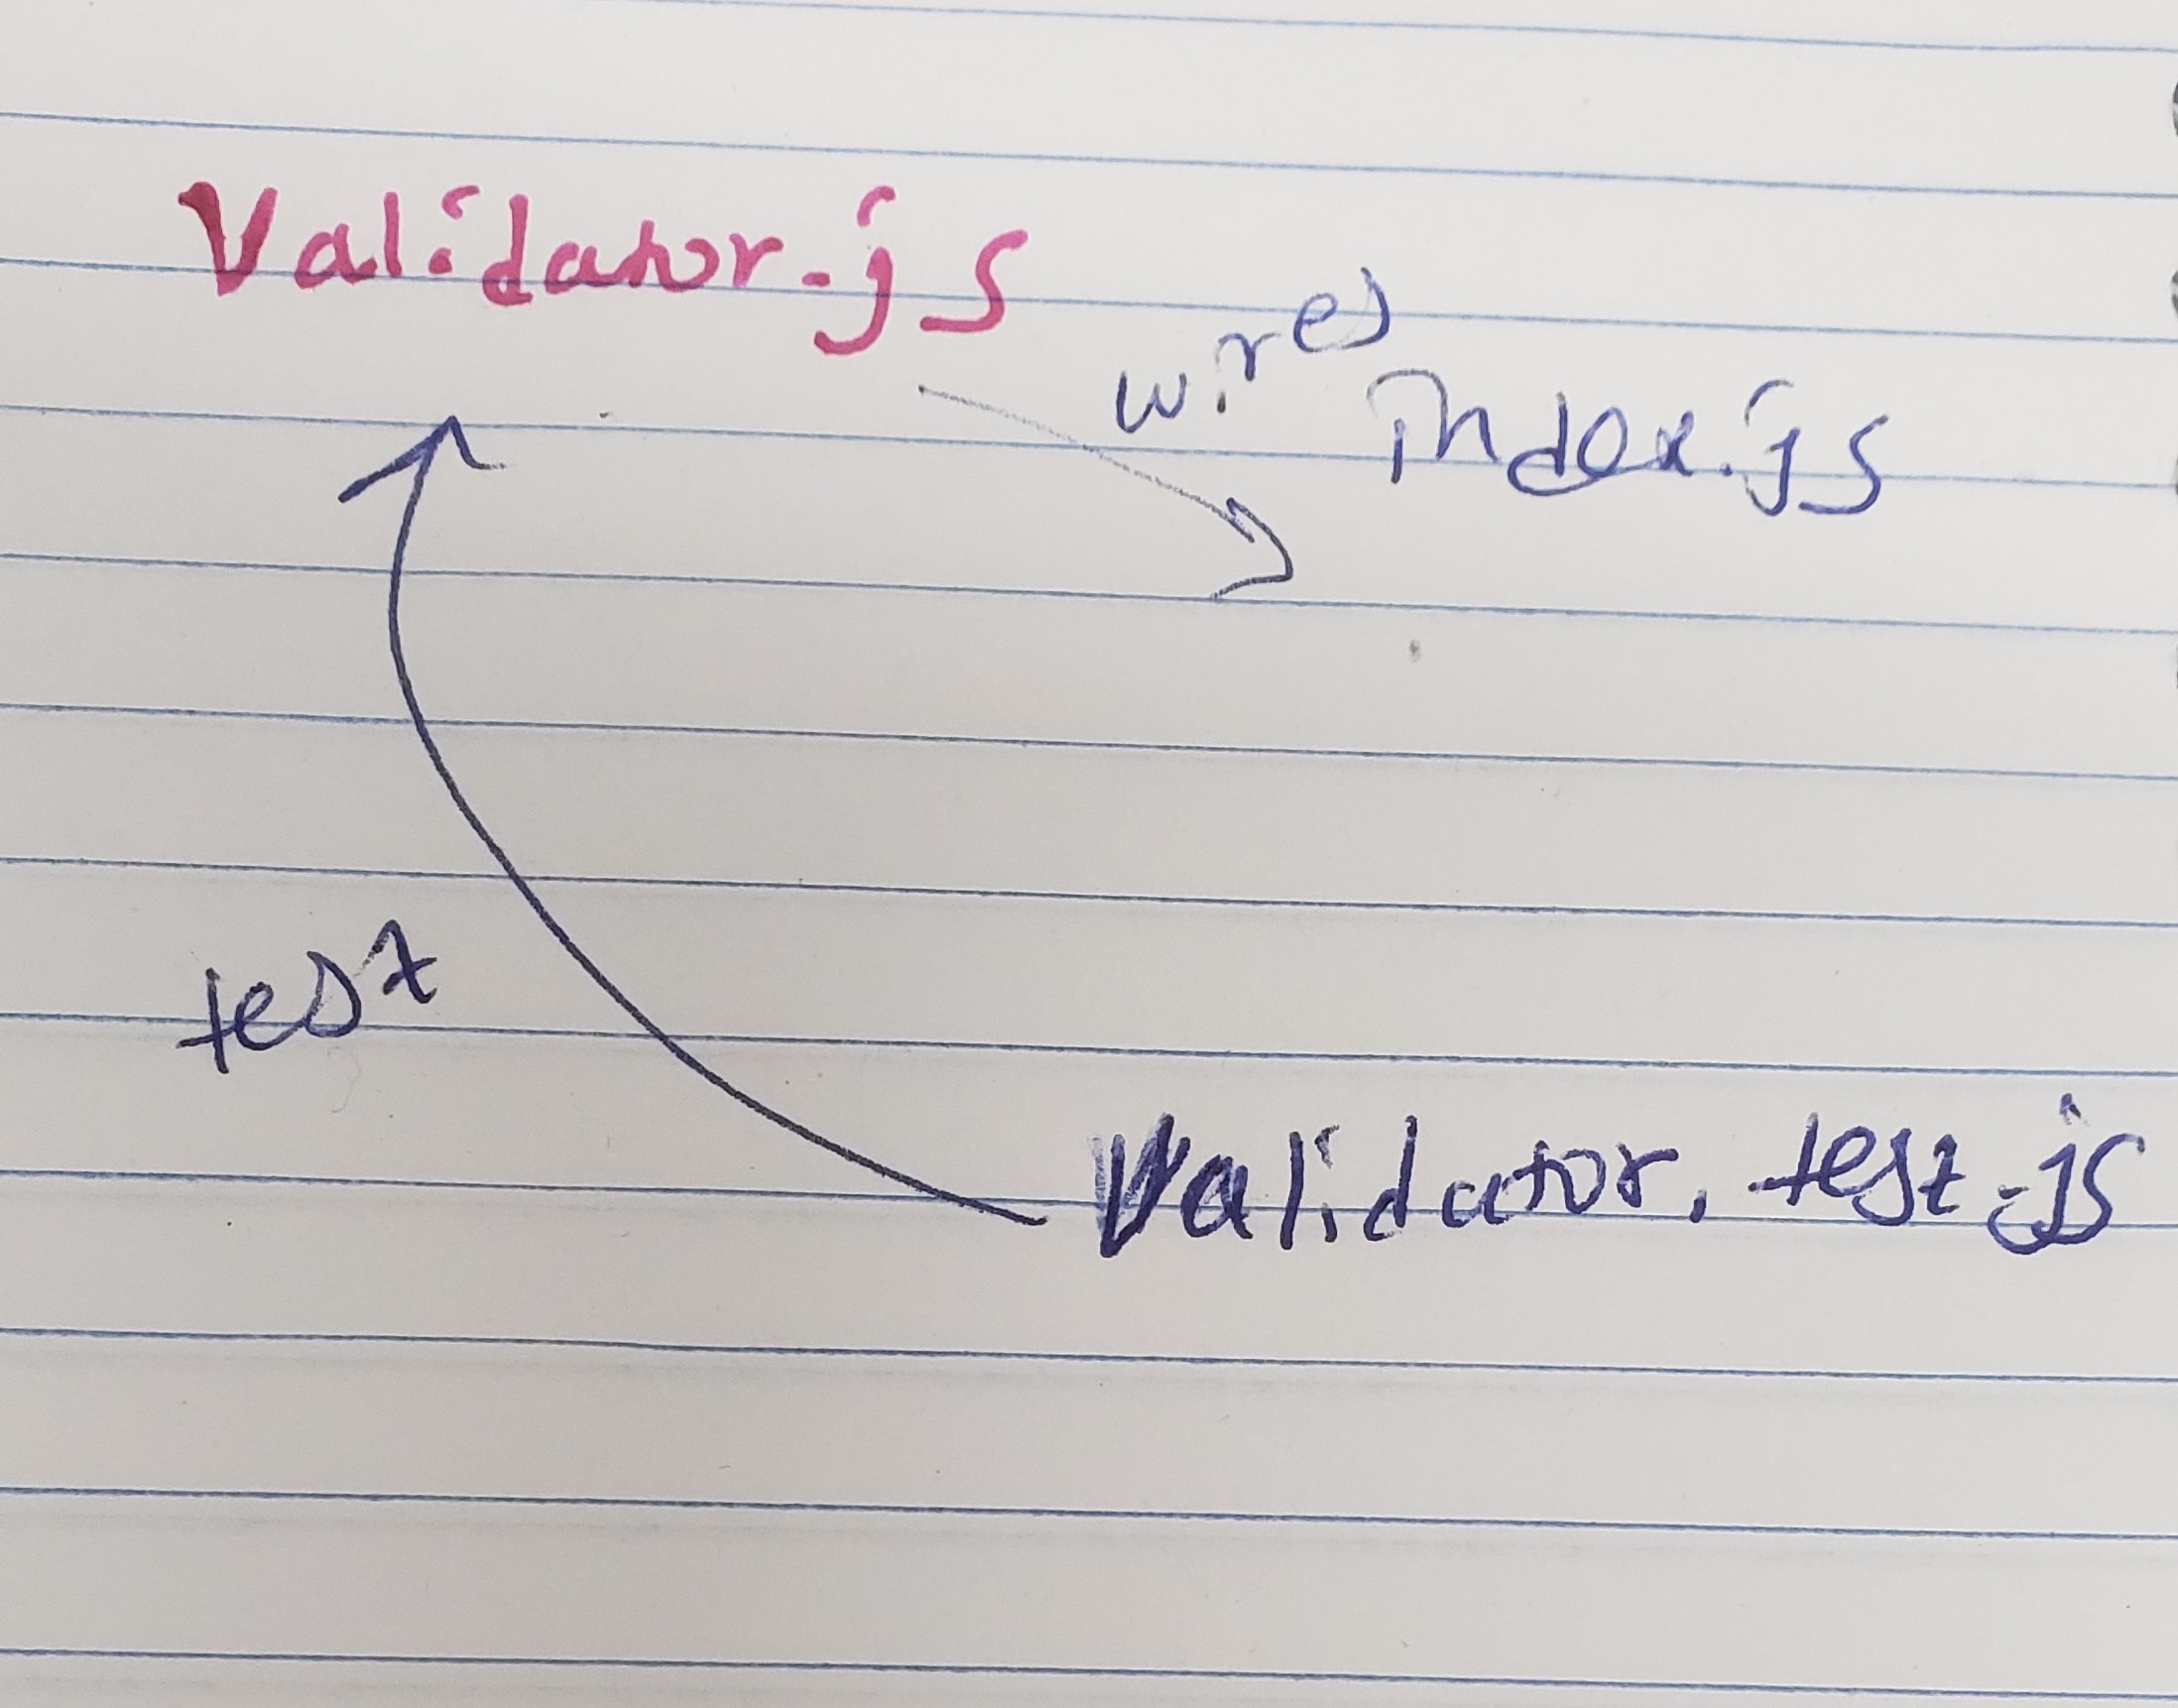 Validator.js
wires
index.js
test
Validator.test.js